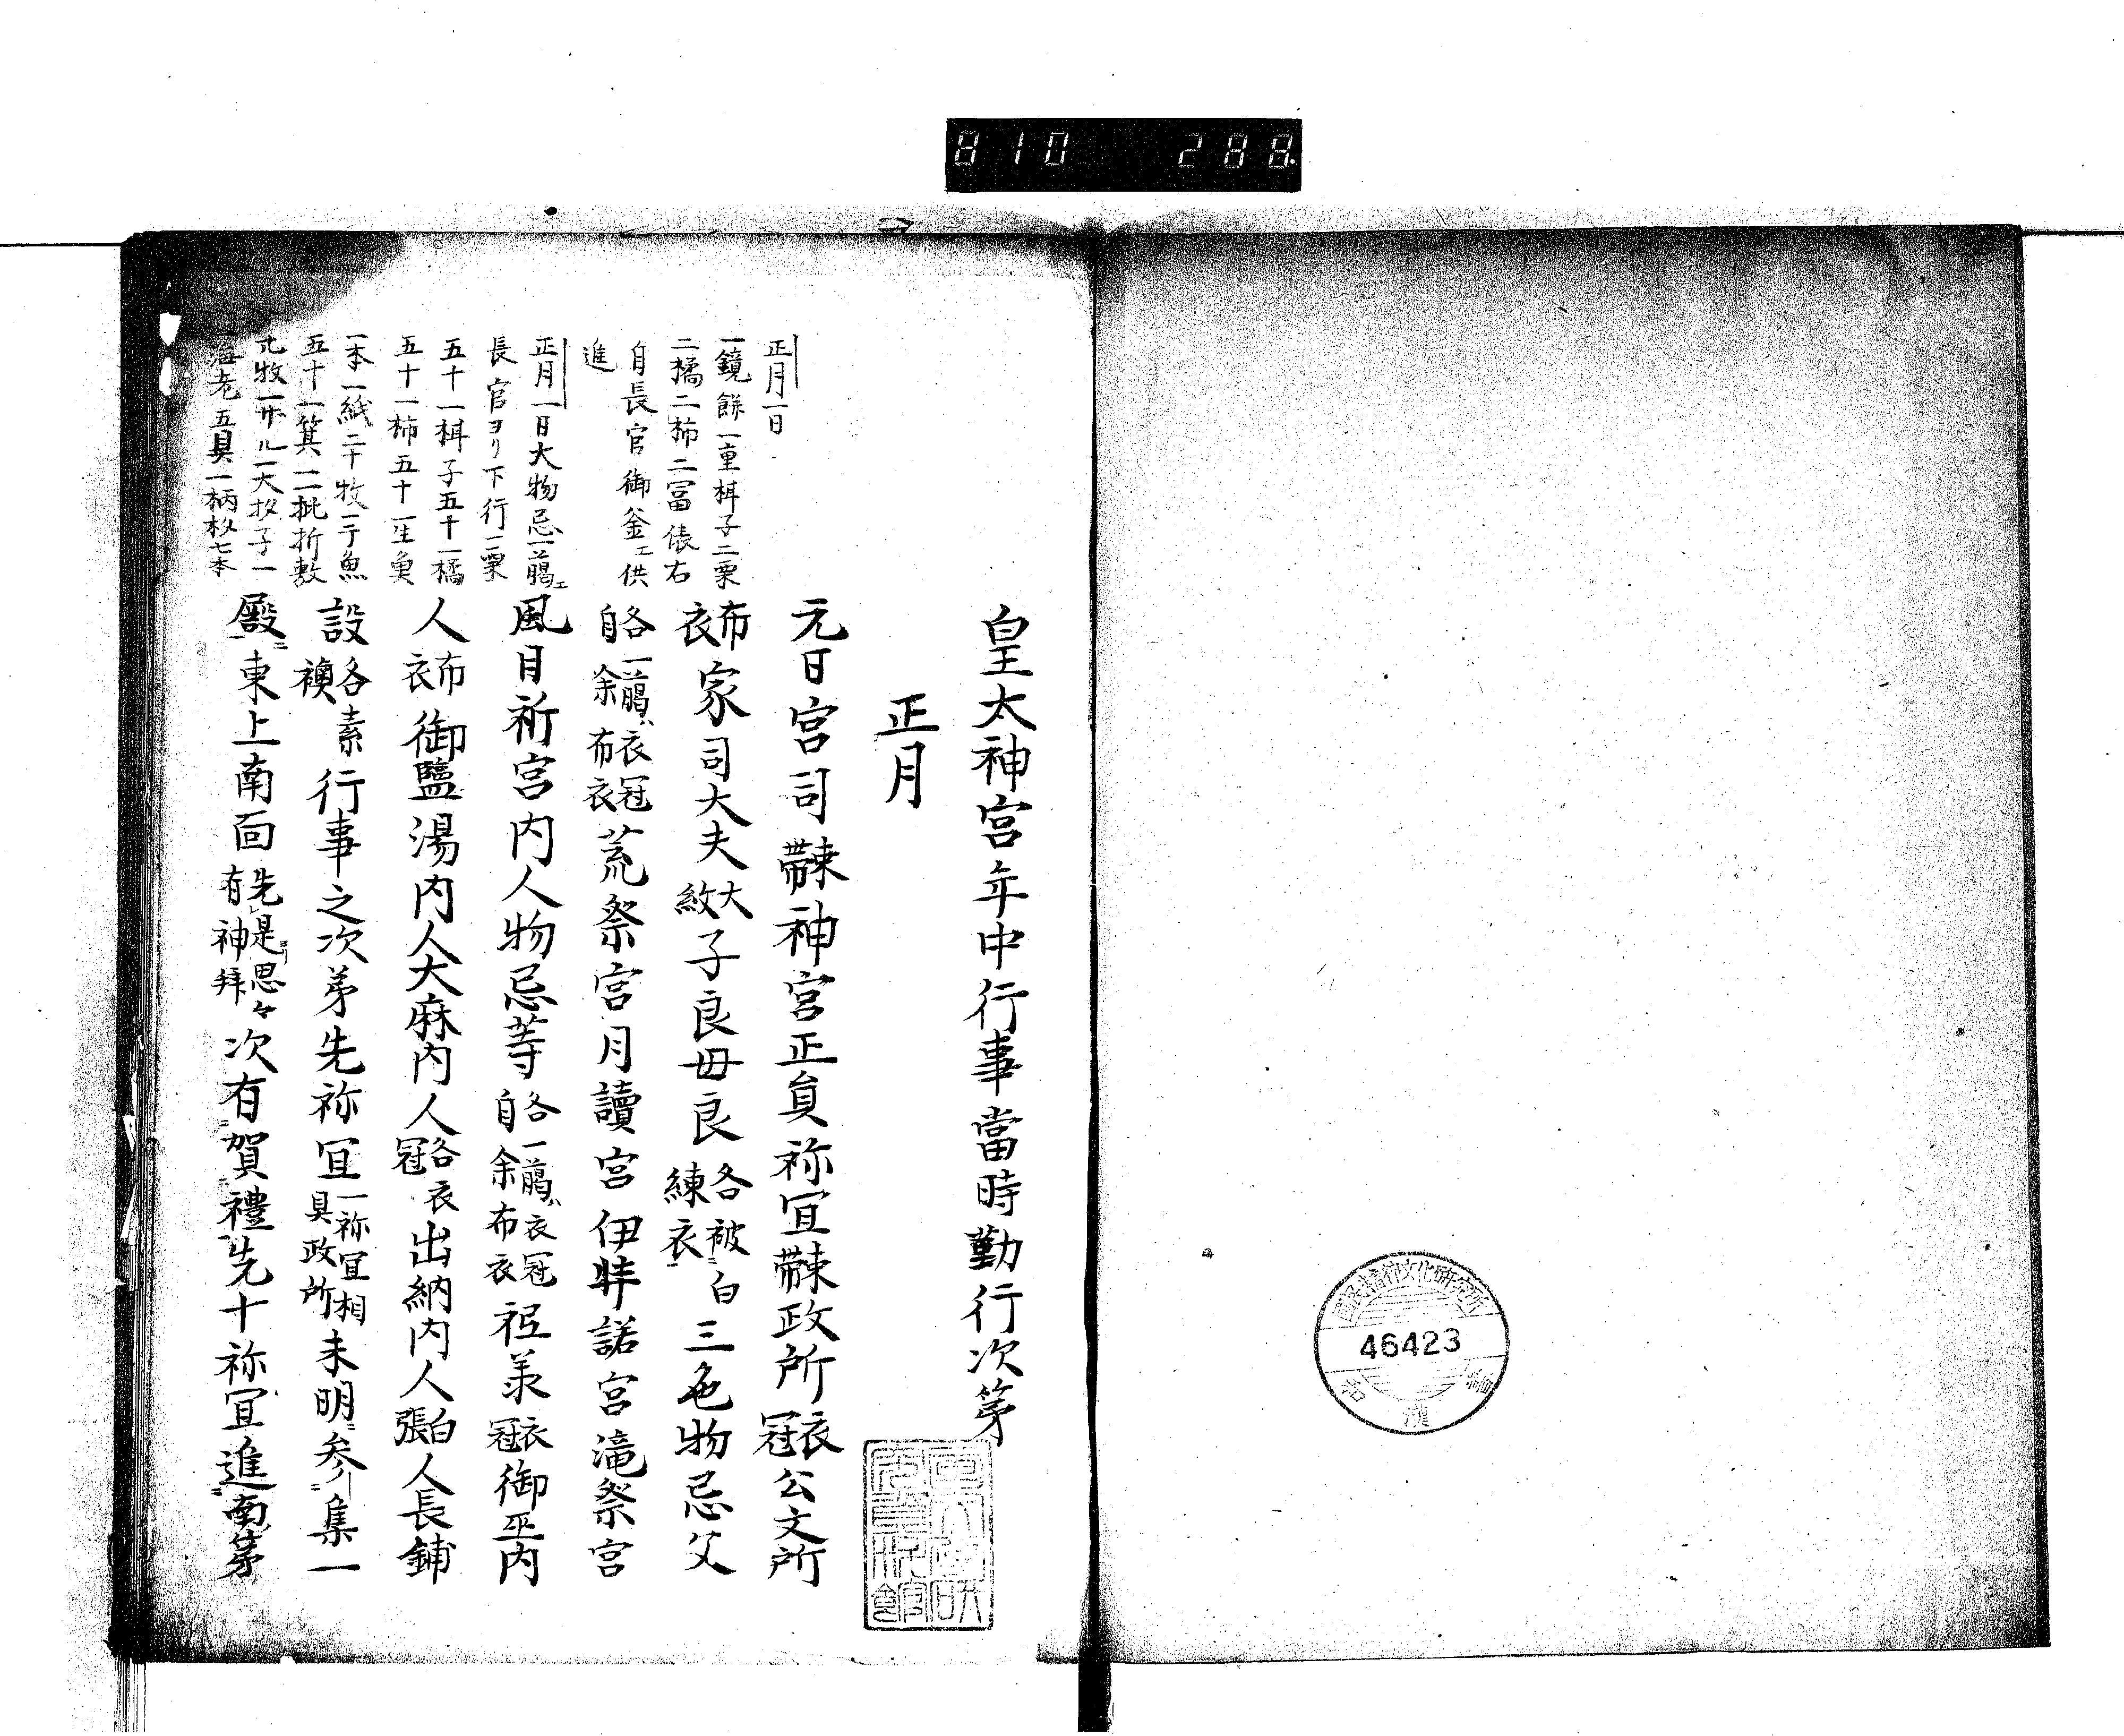 810 288
46423
皇太神宮年中行事當時勤行次第
正月
元日宮司束帯神宮正員祢冝束帯政所衣冠公文所
布衣家司大夫大紋子良母良各被白練衣三色物忌父
各一﨟ハ衣冠自余布衣荒祭宮月讀宮伊弉諾宮滝祭宮
風日祈宮内人物忌等各一﨟ハ衣冠自余布衣祗羕衣冠御巫内
人布衣御鹽湯内人大麻内人各衣冠出納内人白張人長鋪
設各素襖行事之次第先祢冝一祢冝相具政所未明参集一
殿東上南面先是思々有神拜次有賀禮先十祢冝進南第
正月一日
一鏡餅一重栮子二栗
二橘二柿二冨俵右
自長官御釜エ供
進
正月一日大物忌一﨟エ
長官ヨリ下行一栗
五十一栮子五十一橘
五十一柿五十一生魚
一本一紙二十牧一干魚
五十一箕一枇折敷
海老五具一柄杓七本